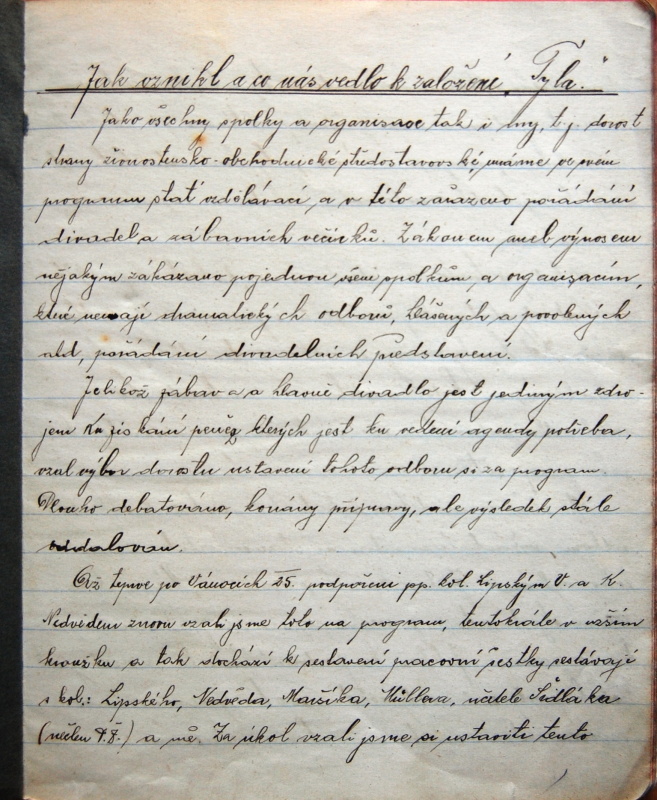 Jak vznikl a co nás vedlo k založení „Tyla."
Jako všechny spolky a organisace tak i my, t.j. dorost
strany živnostensko-obchodnické středostavovské, máme ve svém
programu stať vzdělávací a v této zařazeno pořádání
divadel a zábavních večírků. Zákonem aneb výnosem
nějakým zakázáno pojednou všem spolkům a organisacím,
které nemají dramatických odborů, hlášených a povolených
atd, pořádání divadelních představení.
Jelikož zábava a hlavně divadlo jest jediným zdro-
jem ku získání peněz kterých jest ku vedení agendy potřeba,
vzal výbor dorostu ustavení tohoto odboru si za program.
Dlouho debatováno, konány přípravy, ale výsledek stále
oddalován.
Až teprve po Vánocích 25. podpořeni pp. kol. Lipským V. a K.
Nedvědem znovu vzali jsme toto na program, tentokráte v užším
kroužku a tak dochází k sestavení pracovní šestky sestávají
z kol.: Lipského, Nedvěda, Maršíka, Müllera, učitele Šidláka
(nečlen ) a mě. Za úkol vzali jsme si ustaviti tento